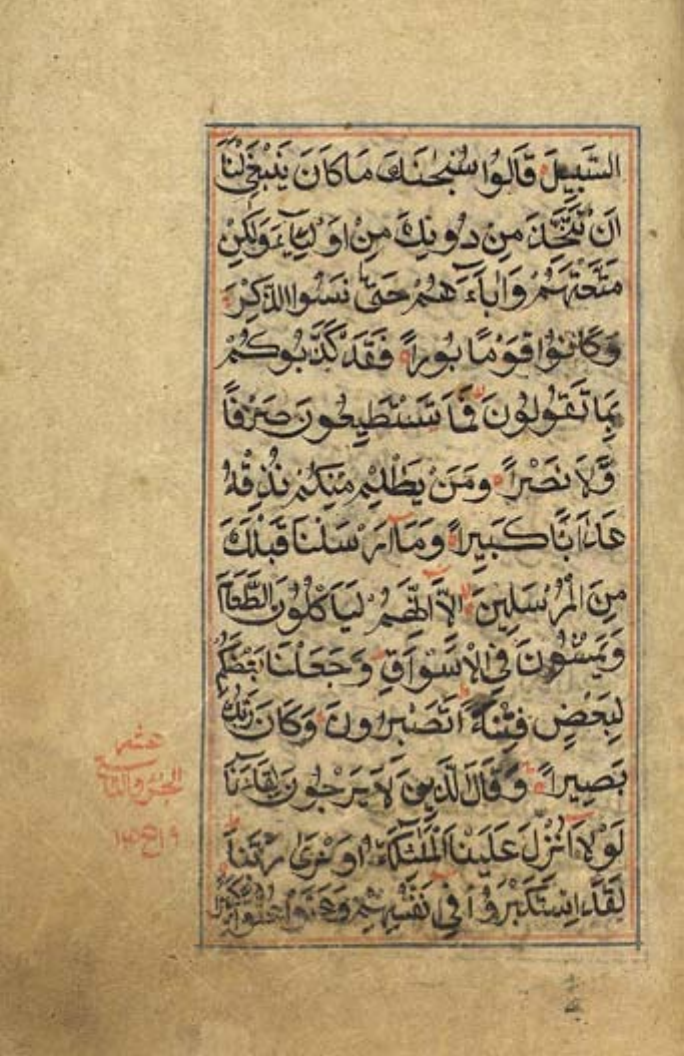 السَّبِيلَ قَالُوا سُبْحٰنَكَ مَا كَانَ يَنْبَغِي لَنَا
اَنْ نَتَّخِذَ مِنْ دُونِكَ مِنْ اَوْلِيَاءَ وَلٰكِنْ
مَتَّعْتَهُمْ وَاٰبَاءَهُمْ حَتّٰى نَسُوا الذِّكْرَ
وَكَانُوا قَوْمًا بُورًا فَقَدْ كَذَّبُوكُمْ
بِمَا تَقُولُونَ فَمَا تَسْتَطِيعُونَ صَرْفًا
وَّلَا نَصْرًا وَمَنْ يَظْلِمْ مِنْكُمْ نُذِقْهُ
عَذَابًا كَبِيرًا وَمَا اَرْسَلْنَا قَبْلَكَ
مِنَ الْمُرْسَلِينَ اِلَّا اِنَّهُمْ لَيَاْكُلُونَ الطَّعَامَ
وَيَمْشُونَ فِي الْاَسْوَاقِ وَجَعَلْنَا بَعْضَكُمْ
لِبَعْضٍ فِتْنَةً اَتَصْبِرُونَ وَكَانَ رَبُّكَ
بَصِيرًا وَقَالَ الَّذِينَ لَا يَرْجُونَ لِقَاءَنَا
لَوْلَا اُنْزِلَ عَلَيْنَا الْمَلٰئِكَةُ اَوْ نَرٰى رَبَّنَا
لَقَدِ اسْتَكْبَرُوا فِي اَنْفُسِهِمْ وَعَتَوْا عُتُوًّا كَبِيرًا
عشر
الجزو التاسع